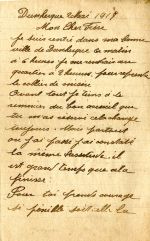 Dunkerque 2 Mai 1917
Mon Cher Frère
Je suis rentré dans ma bonne
ville de Dunkerque ce matin
à 6 heures je me rentrais au
quartier à 8 heures, pour reprendre
le collier de misère
Avant tout je tiens à te
remercier du bon accueil que
tu m'as réservé cela change
toujours. Mais partout
où j'ai passé j'ai constaté
la même lassitude il
est grand temps que cela
finisse.
Pour toi prends courage
si pénible soit-elle la